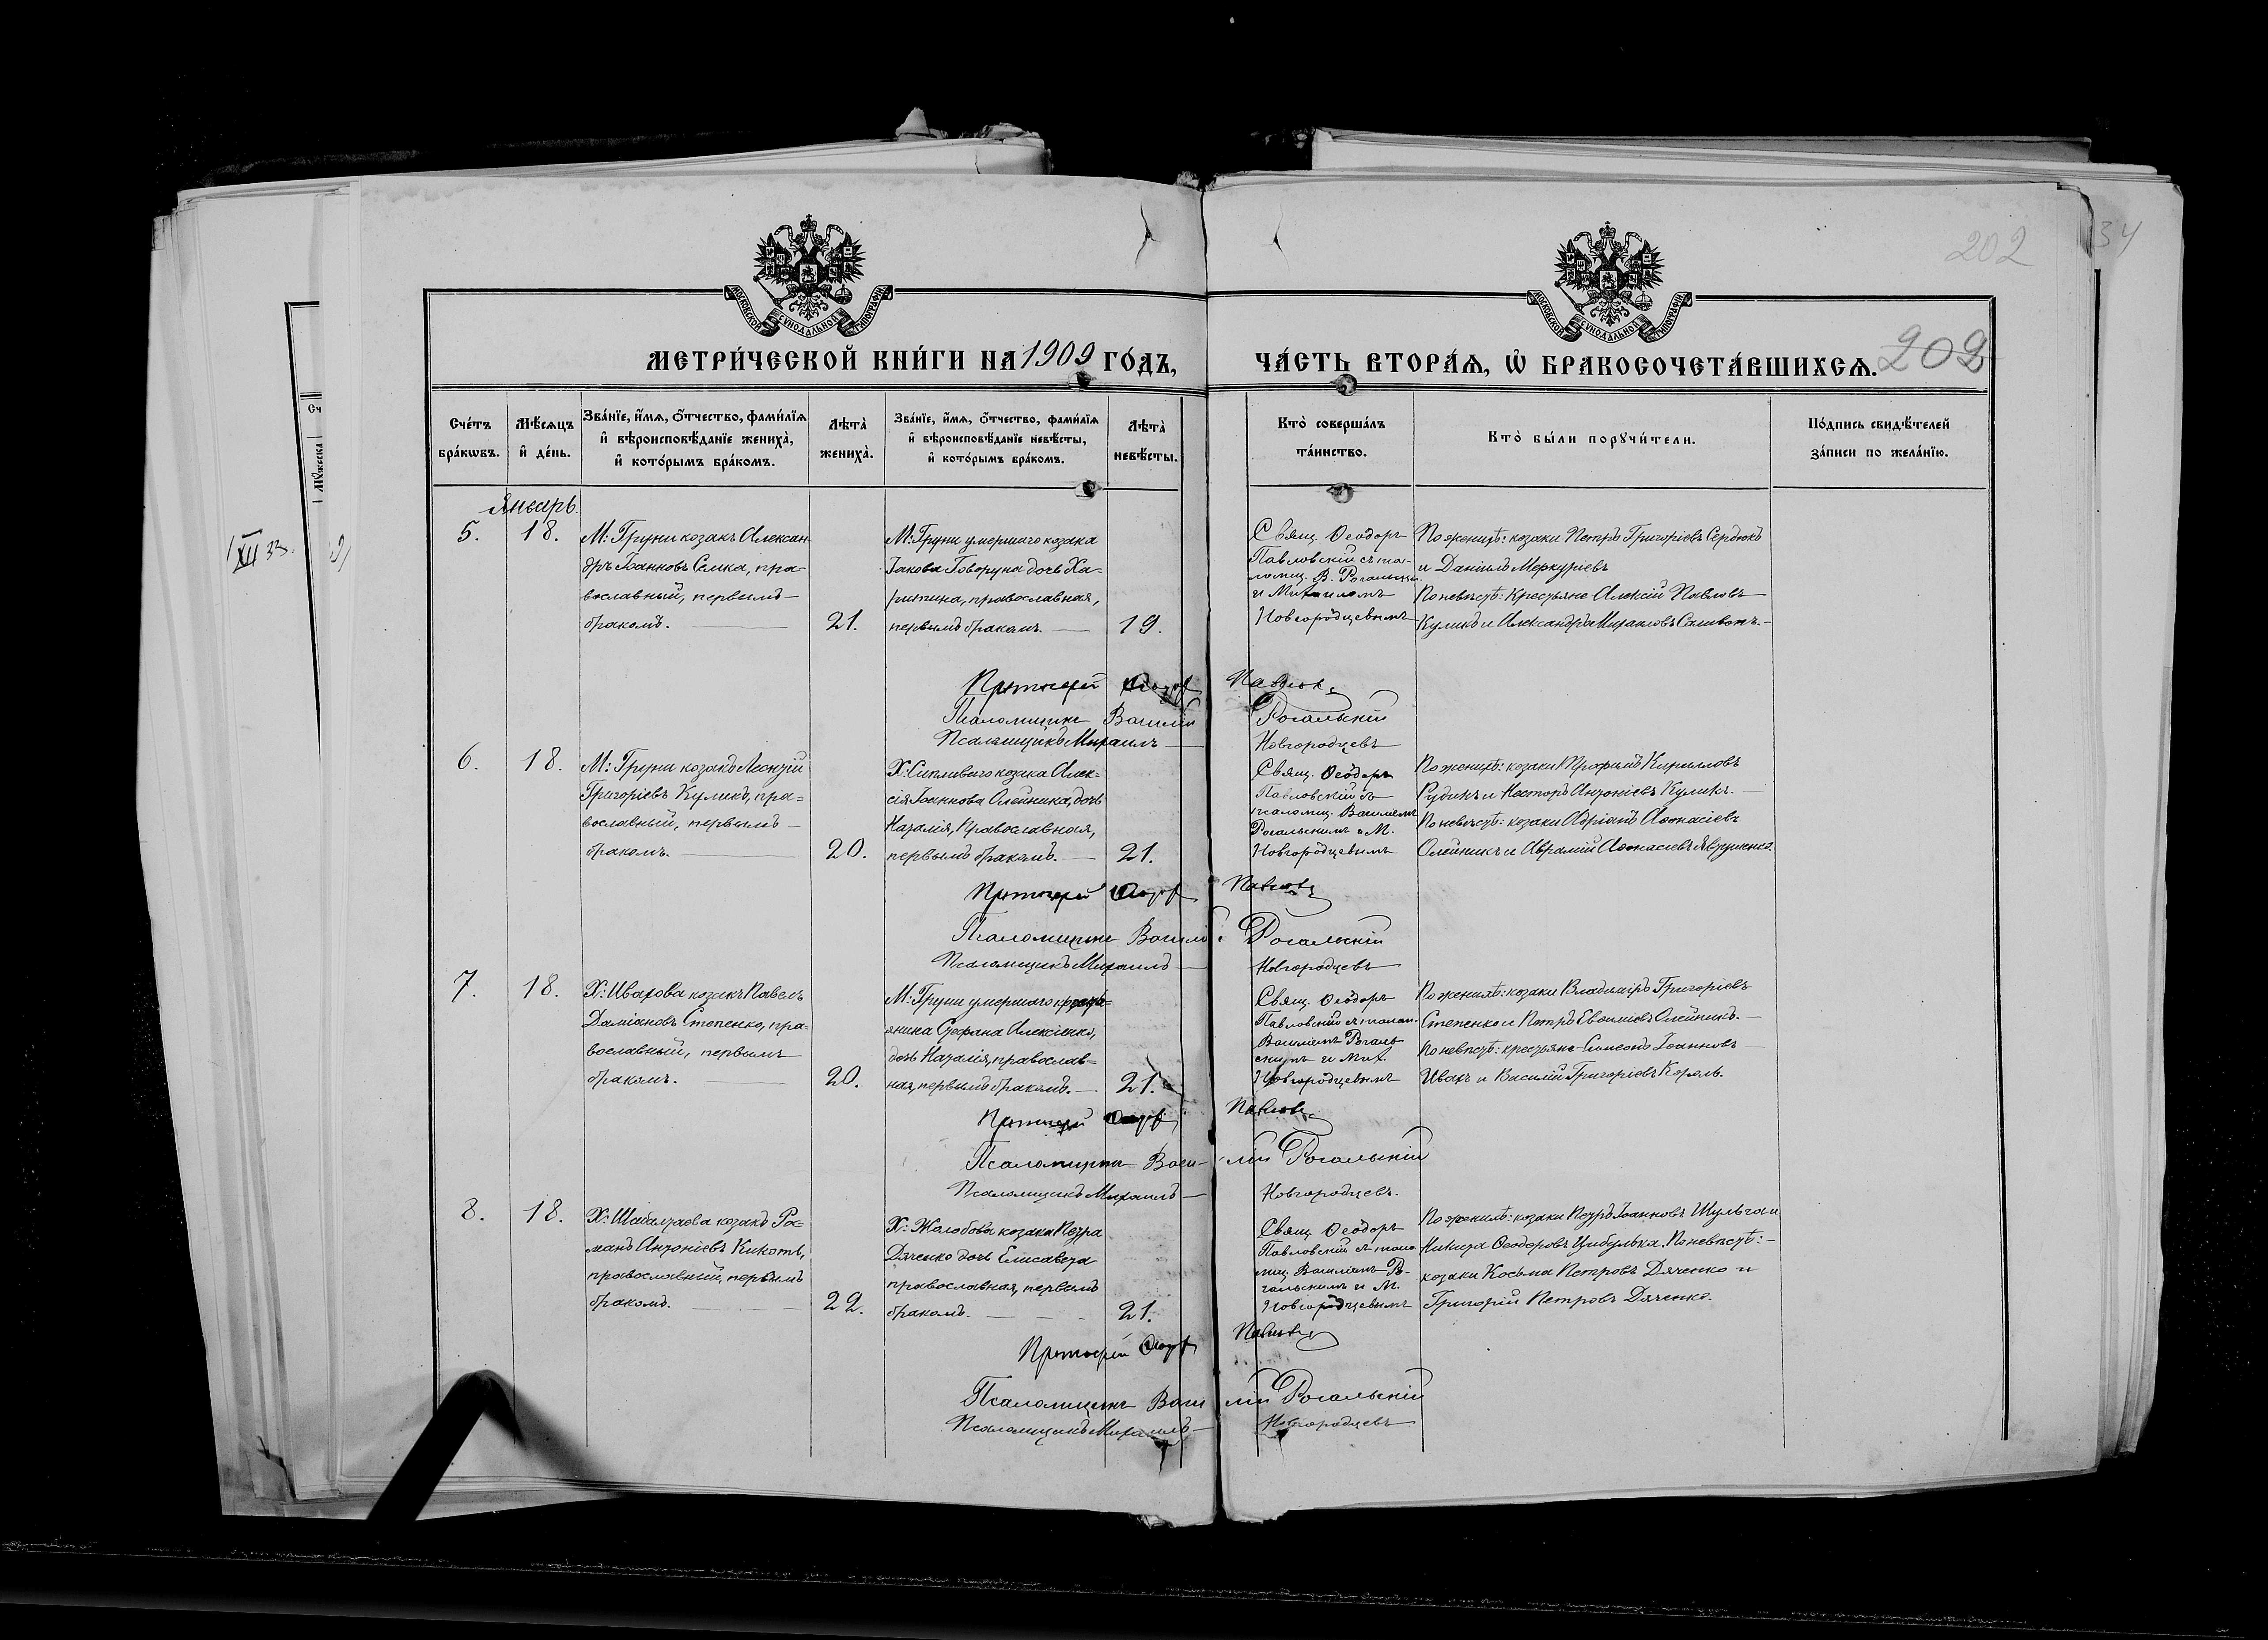 202
34
МОСКОВСКОЙ СѴНОДАЛЬНОЙ ТИПОГРАФІИ
МОСКОВСКОЙ СѴНОДАЛЬНОЙ ТИПОГРАФІИ
МЕТРИ́ЧЕСКОЙ КНИ́ГИ НА 1909 ГО́ДЪ,
ЧА́СТЬ ВТОРА́Ѧ, Ѡ҆ БРАКОСОЧЕТА́ВШИХСѦ. 202
Сче́тъ бра́кѡвъ.
Мѣ́сѧцъ и҆ де́нь.
Зва́нїе, и҆́мѧ, ѻ҆́тчество, фами́лїѧ
и҆ вѣроисповѣ́данїе жениха̀,
и҆ кото́рымъ бра́комъ.
Лѣта̀ жениха̀.
Зва́нїе, и҆́мѧ, ѻ҆́тчество, фами́лїѧ
и҆ вѣроисповѣ́данїе невѣ́сты,
и҆ кото́рымъ бра́комъ.
Лѣта̀ невѣ́сты.
Кто̀ соверша́лъ
та́инство.
Кто̀ бы́ли порꙋчи́тели.
По́дпись свидѣ́телей
за́писи по жела́нїю.
Январь.
5.
18.
М: Груни козакъ Алексан
дръ Іоанновъ Семка, пра-
вославный, первымъ
бракомъ.
21.
М: Груни умершаго козака
Іакова Говоруна дочь Ха-
ритина, православная,
первымъ бракомъ.
19.
Свящ. Ѳеодоръ
Павловскій съ пса-
ломщ. В. Рогальским
и Михаиломъ
Новгородцевымъ
По женихѣ: козаки Петръ Григоріевъ Сердюкъ
и Даніилъ Меркуріевъ
По невѣстѣ: Крестьяне Алексій Павловъ
Куликъ и Александръ Михаиловъ
Протоіерей Ѳеодоръ Павловс
Псаломщикъ Василій Рогальскій
Псаломщикъ Михаилъ Новгородцевъ
6.
18.
М: Груни козакъ Леонтій
Григоріевъ Куликъ, пра=
вославный, первымъ
бракомъ.
20.
Х: Сипливаго козака Алек=
сія Іоаннова Олейника, дочь
Наталія, Православная,
первымъ бракомъ.
21.
Свящ. Ѳеодоръ
Павловскій съ
псаломщ. Василіемъ
Рогальскимъ и М.
Новгородцевымъ
По женихѣ: козаки Трофимъ Кирилловъ
Рудикъ и Несторъ Антоніевъ Куликъ.
По невѣстѣ: козаки Адріанъ Аѳонасіевъ
Олейникъ и Аврамій Аѳонасіевъ
Протоіерей Ѳеодоръ Павловс
Псаломщикъ Василій Рогальскій
Псаломщикъ Михаилъ Новгородцевъ
7.
18.
Х: Ивахова козакъ Павелъ
Даміановъ Степенко, пра-
вославный, первымъ
бракомъ.
20.
М: Груни умершаго кресть=
янина Стефана Алексіенко,
дочь Наталія, православ=
ная, первымъ бракомъ.
21.
Свящ. Ѳеодоръ
Павловскій съ псалом.
Василіемъ Рогаль
скимъ и Мих.
Новгородцевымъ
По женихѣ: козаки Владиміръ Григоріевъ
Степенко и Петръ Евѳиміевъ Олейникъ.
По невѣстѣ: крестьяне Симеонъ Іоанновъ
Ивахъ и Василій Григоріевъ Король.
Протоіерей Ѳеодоръ Павловс
Псаломщикъ Василій Рогальскій
Псаломщикъ Михаилъ Новгородцевъ.
8.
18.
Х: Шабалтаева козакъ Ро-
манъ Антоніевъ Кикоть,
православный, первымъ
бракомъ.
22.
Х: Желобова козака Петра
Дяченко дочь Елисавета
православная, первымъ
бракомъ.
21.
Свящ. Ѳеодоръ
Павловскій съ псало
мщ. Василіемъ Ро-
гальскимъ и М.
Новгородцевымъ
По женихѣ: козаки Петръ Іоанновъ Шульга и
Никита Ѳеодоровъ Цибулька. По невѣстѣ:
козаки Косьма Петровъ Дяченко и
Григорій Петровъ Дяченко.
Протоіерей Ѳеодоръ Павловс
Псаломщикъ Василій Рогальскій
Псаломщикъ Михаилъ Новгородцевъ